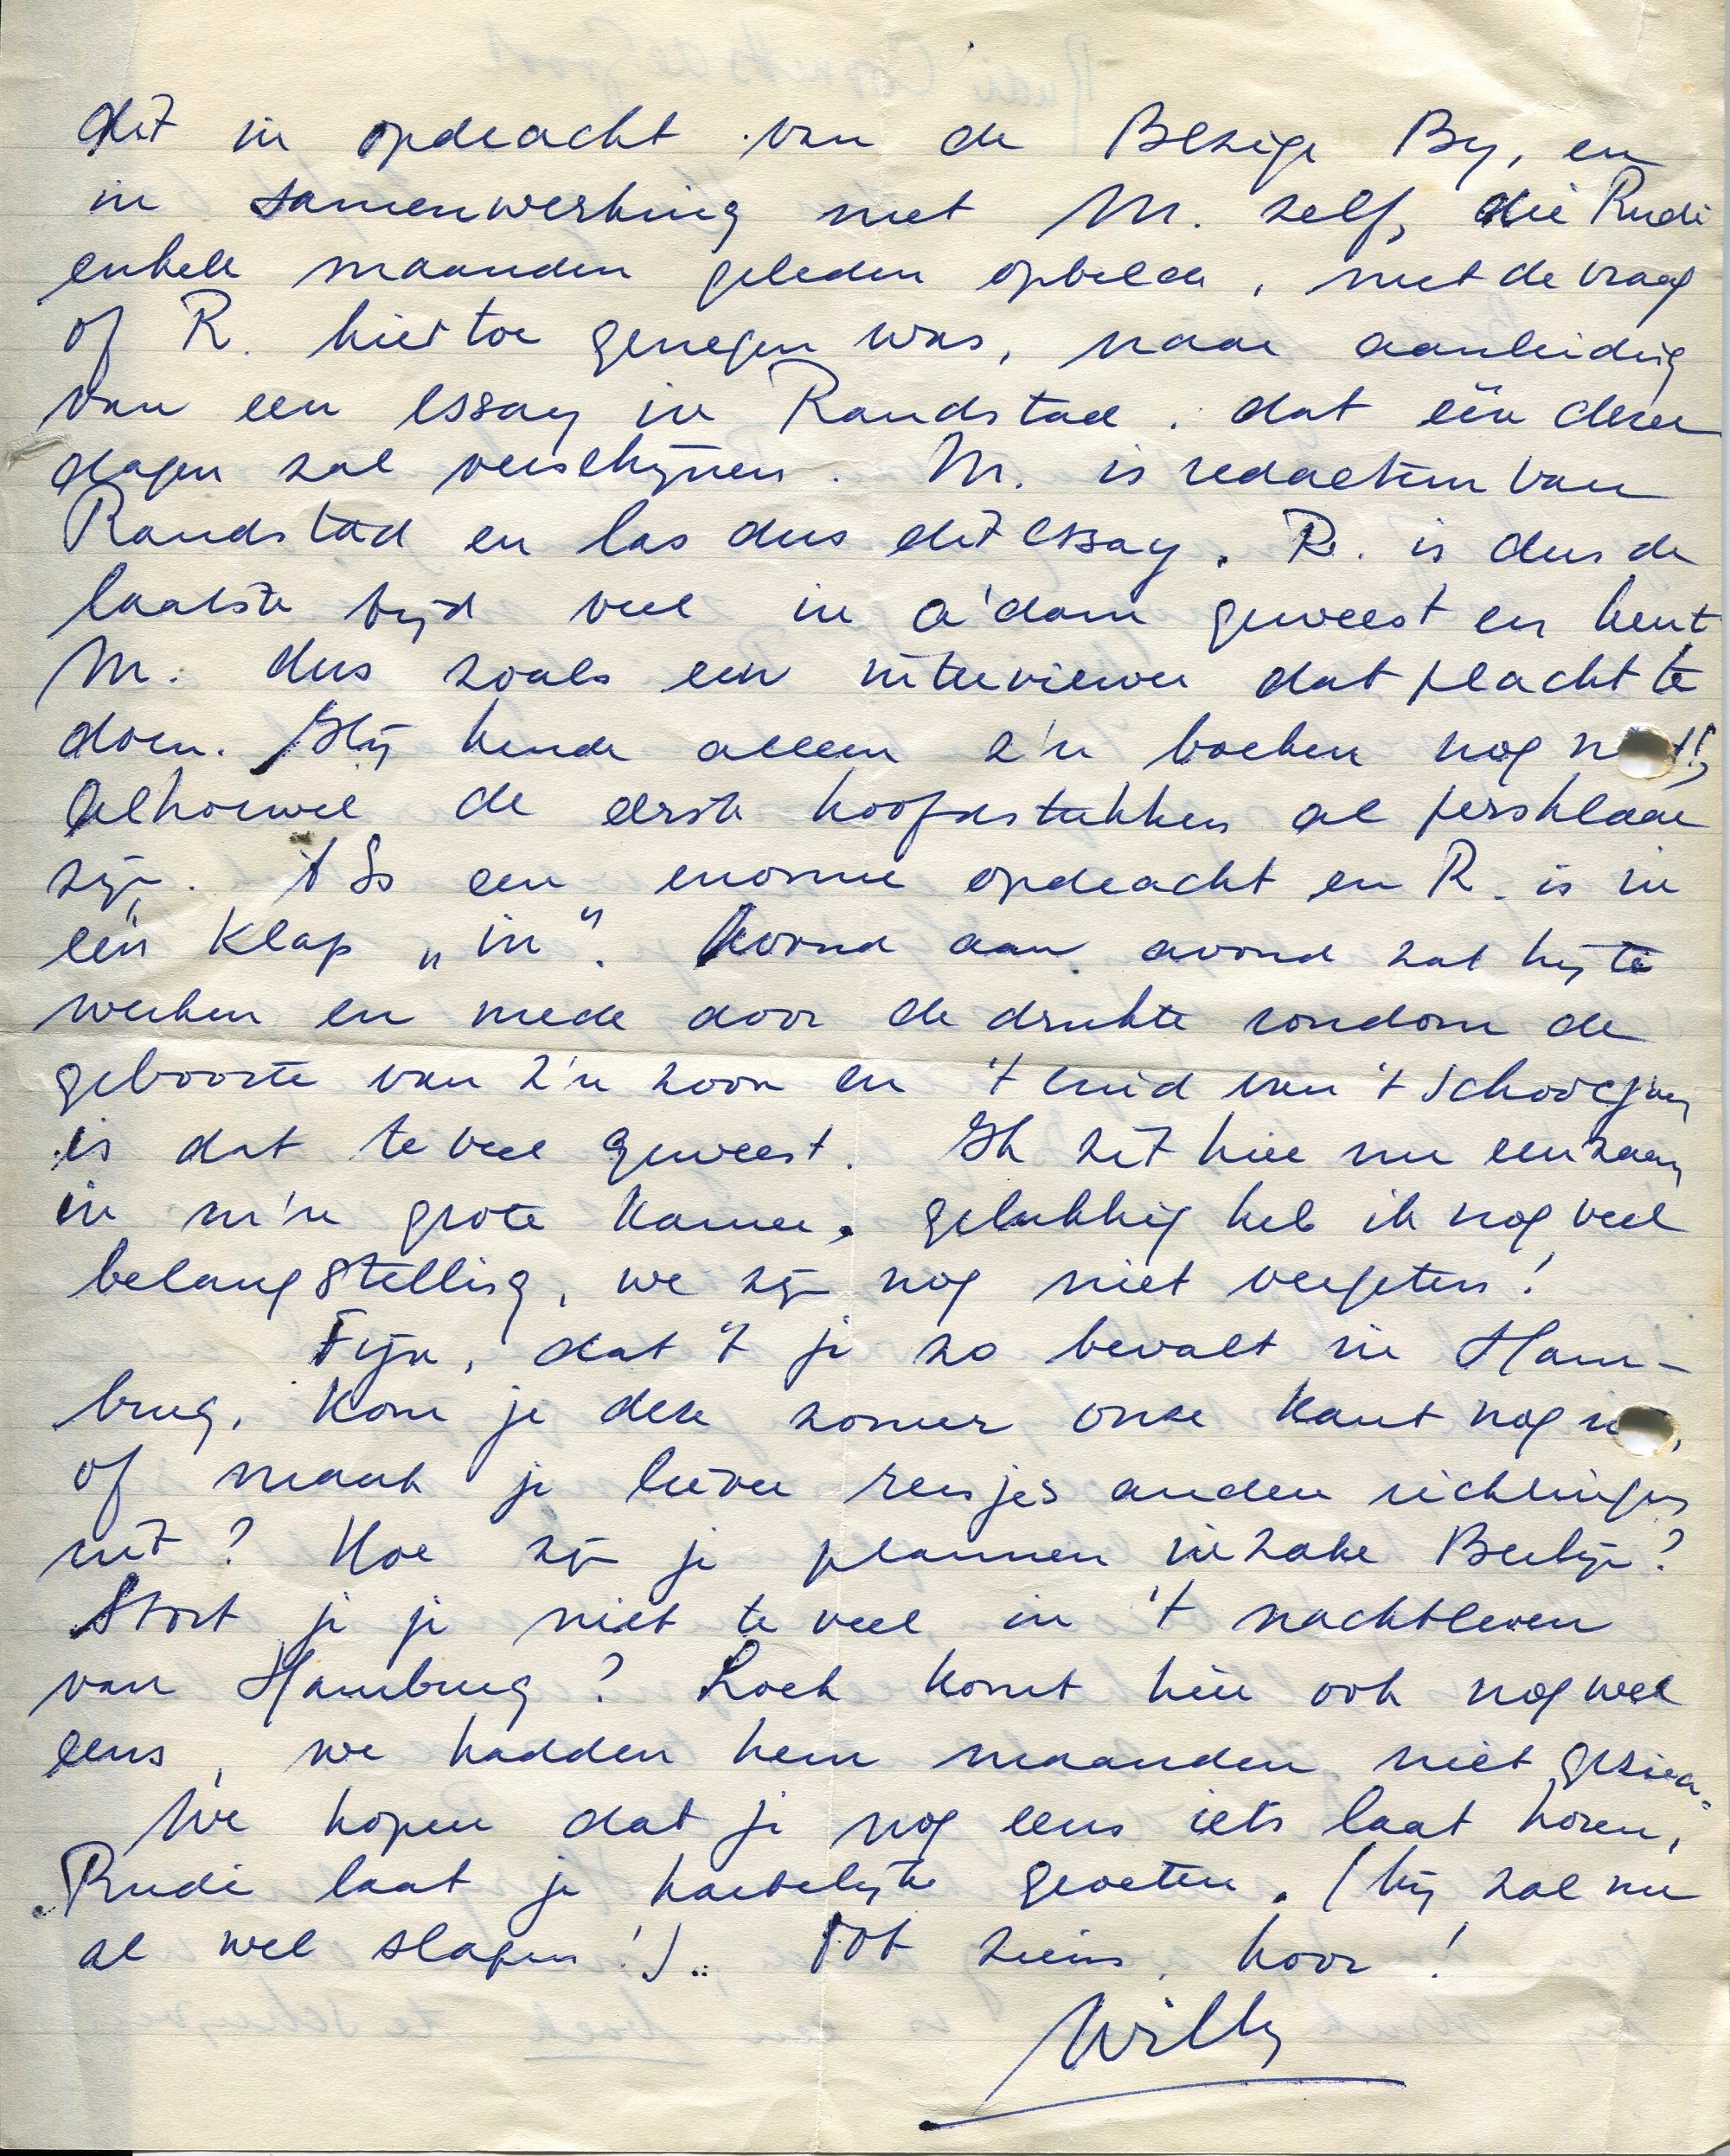 dit in opdracht van de Bezige By, en
in samenwerking met M. zelf, die Rudi
enkele maanden geleden opbelde, met de vraag
of R. hiertoe genegen was, naar aanleiding
van een essay in Randstad. dat één dezer
dagen zal verschijnen. M. is redacteur van
Randstad en las dus dit essay. R. is dus de
laatste tyd veel in A'dam geweest en kent
M. dus zoals een interviewer dat placht te
doen. Hij kende alleen z'n boeken nog
alhoewel de eerste hoofdstukken al persklaar
zijn. 't Is een enorme opdracht en R. is in
één klap „in”. Avond aan avond zat hij te
werken en mede door de drukte rondom de
geboorte van z'n zoon en 't eind van 't schooljaar
is dat te veel geweest. Ik zit hier nu eenzaam
in m'n grote kamer. gelukkig heb ik nog veel
belangstelling, we zijn nog niet vergeten!
Fijn, dat 't je zo bevalt in Ham-
burg, kom je deze zomer onze kant nog
of maak je liever reisjes andere richtingen
uit? Hoe zijn je plannen inzake Berlijn?
Stort je je niet te veel in 't nachtleven
van Hamburg? Loek komt hier ook nog wel
eens, we hadden hem maanden niet gezien.
We hopen dat je nog eens iets laat horen,
Rudi laat je hartelijk groeten. (hij zal nu
al wel slapen!).. Tot ziens, hoor!
Willy